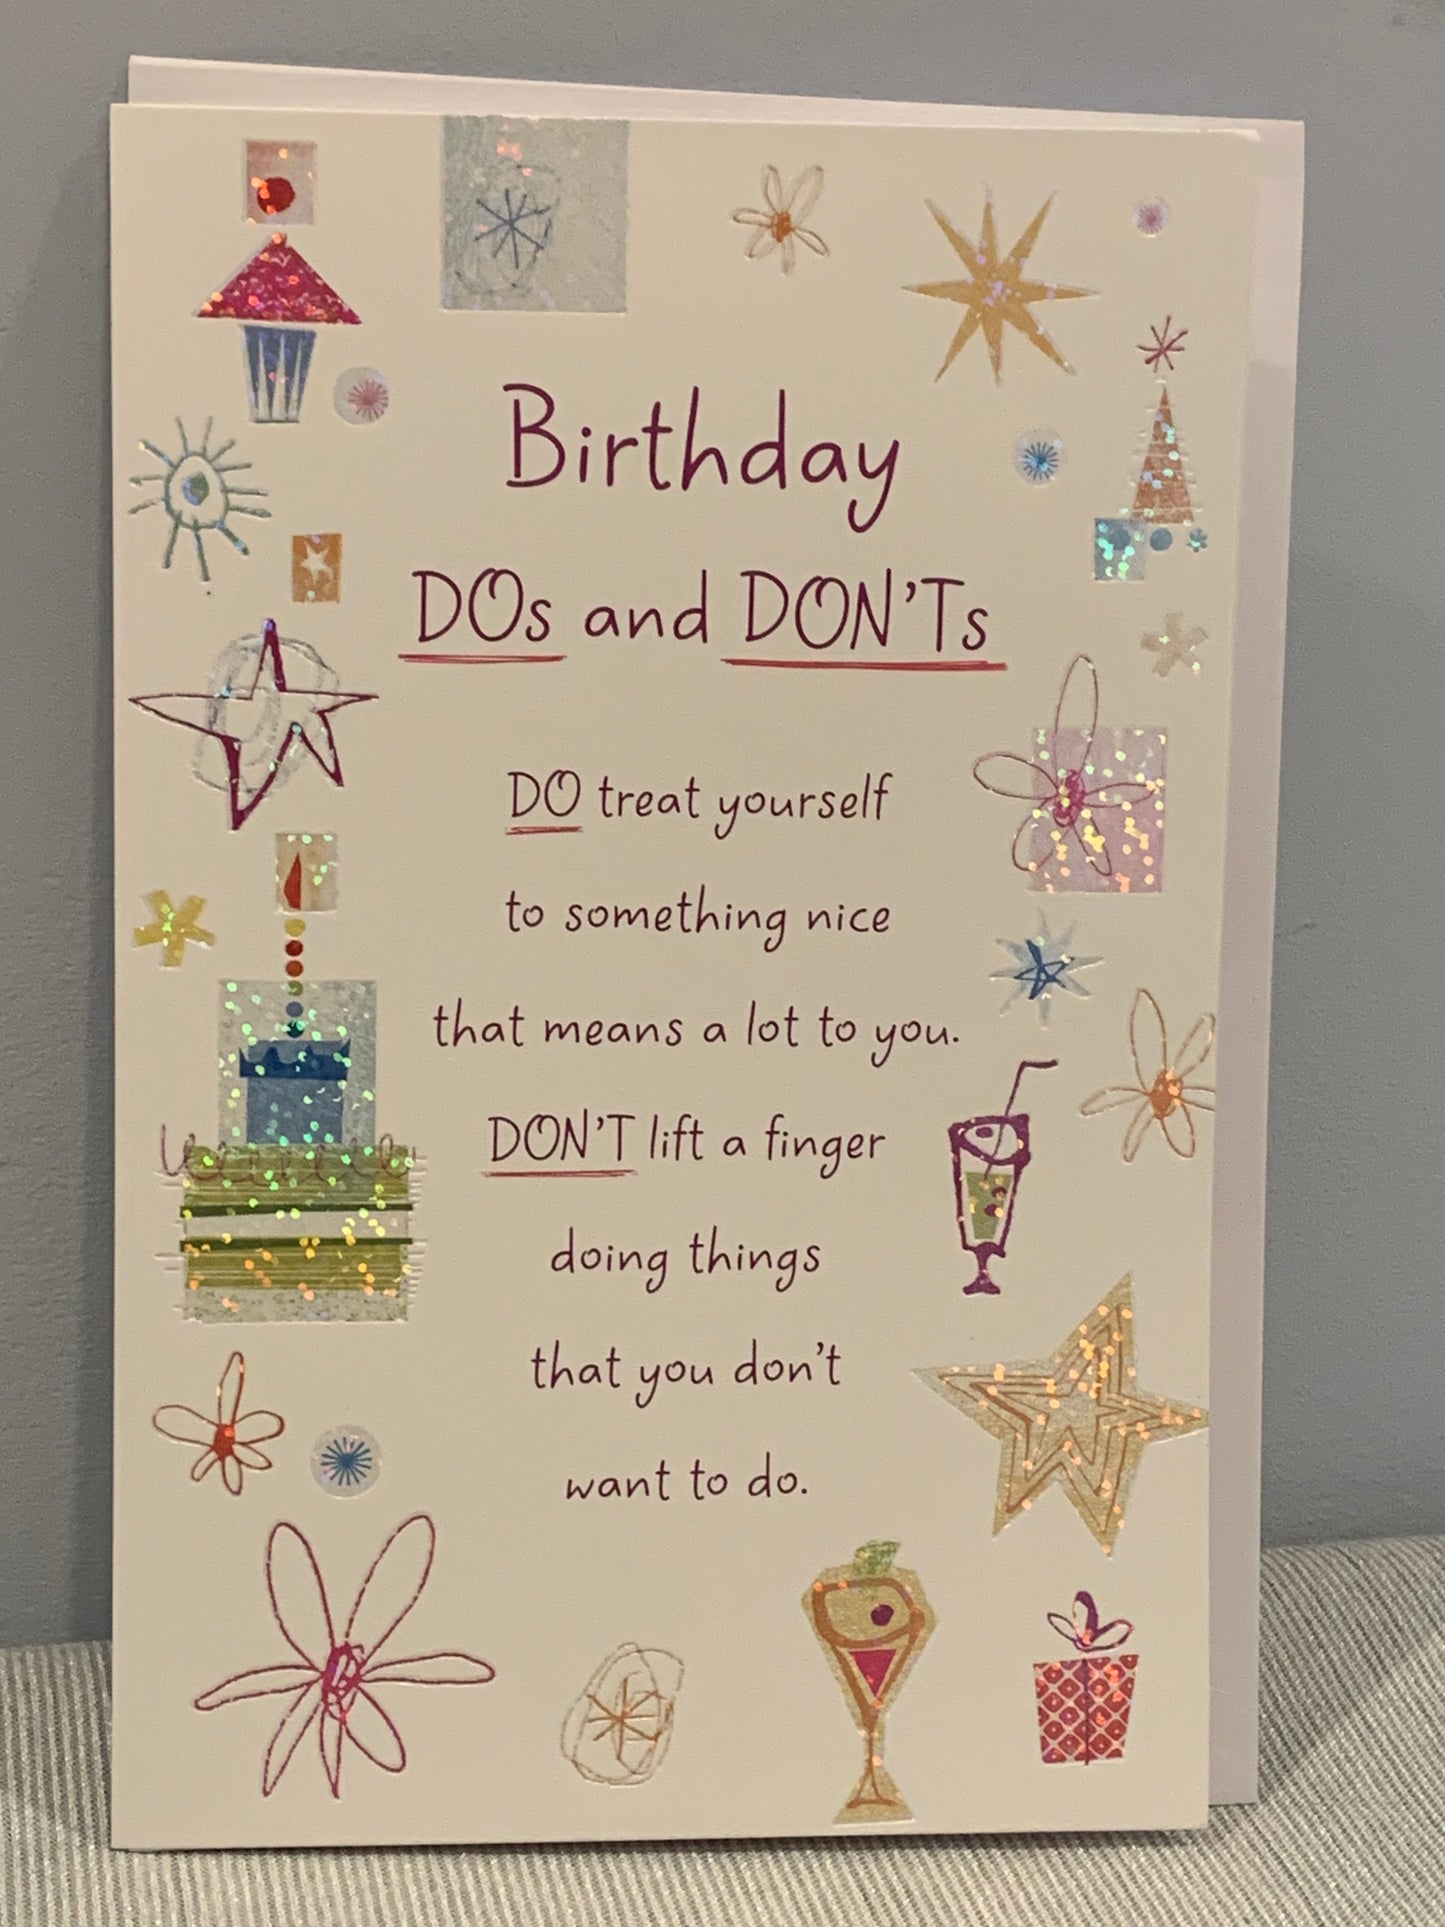 Birthday
DOs and DON'Ts
DO treat yourself
to something nice
that means a lot to you.
DON'T lift a finger
doing things
that you don't
want to do.